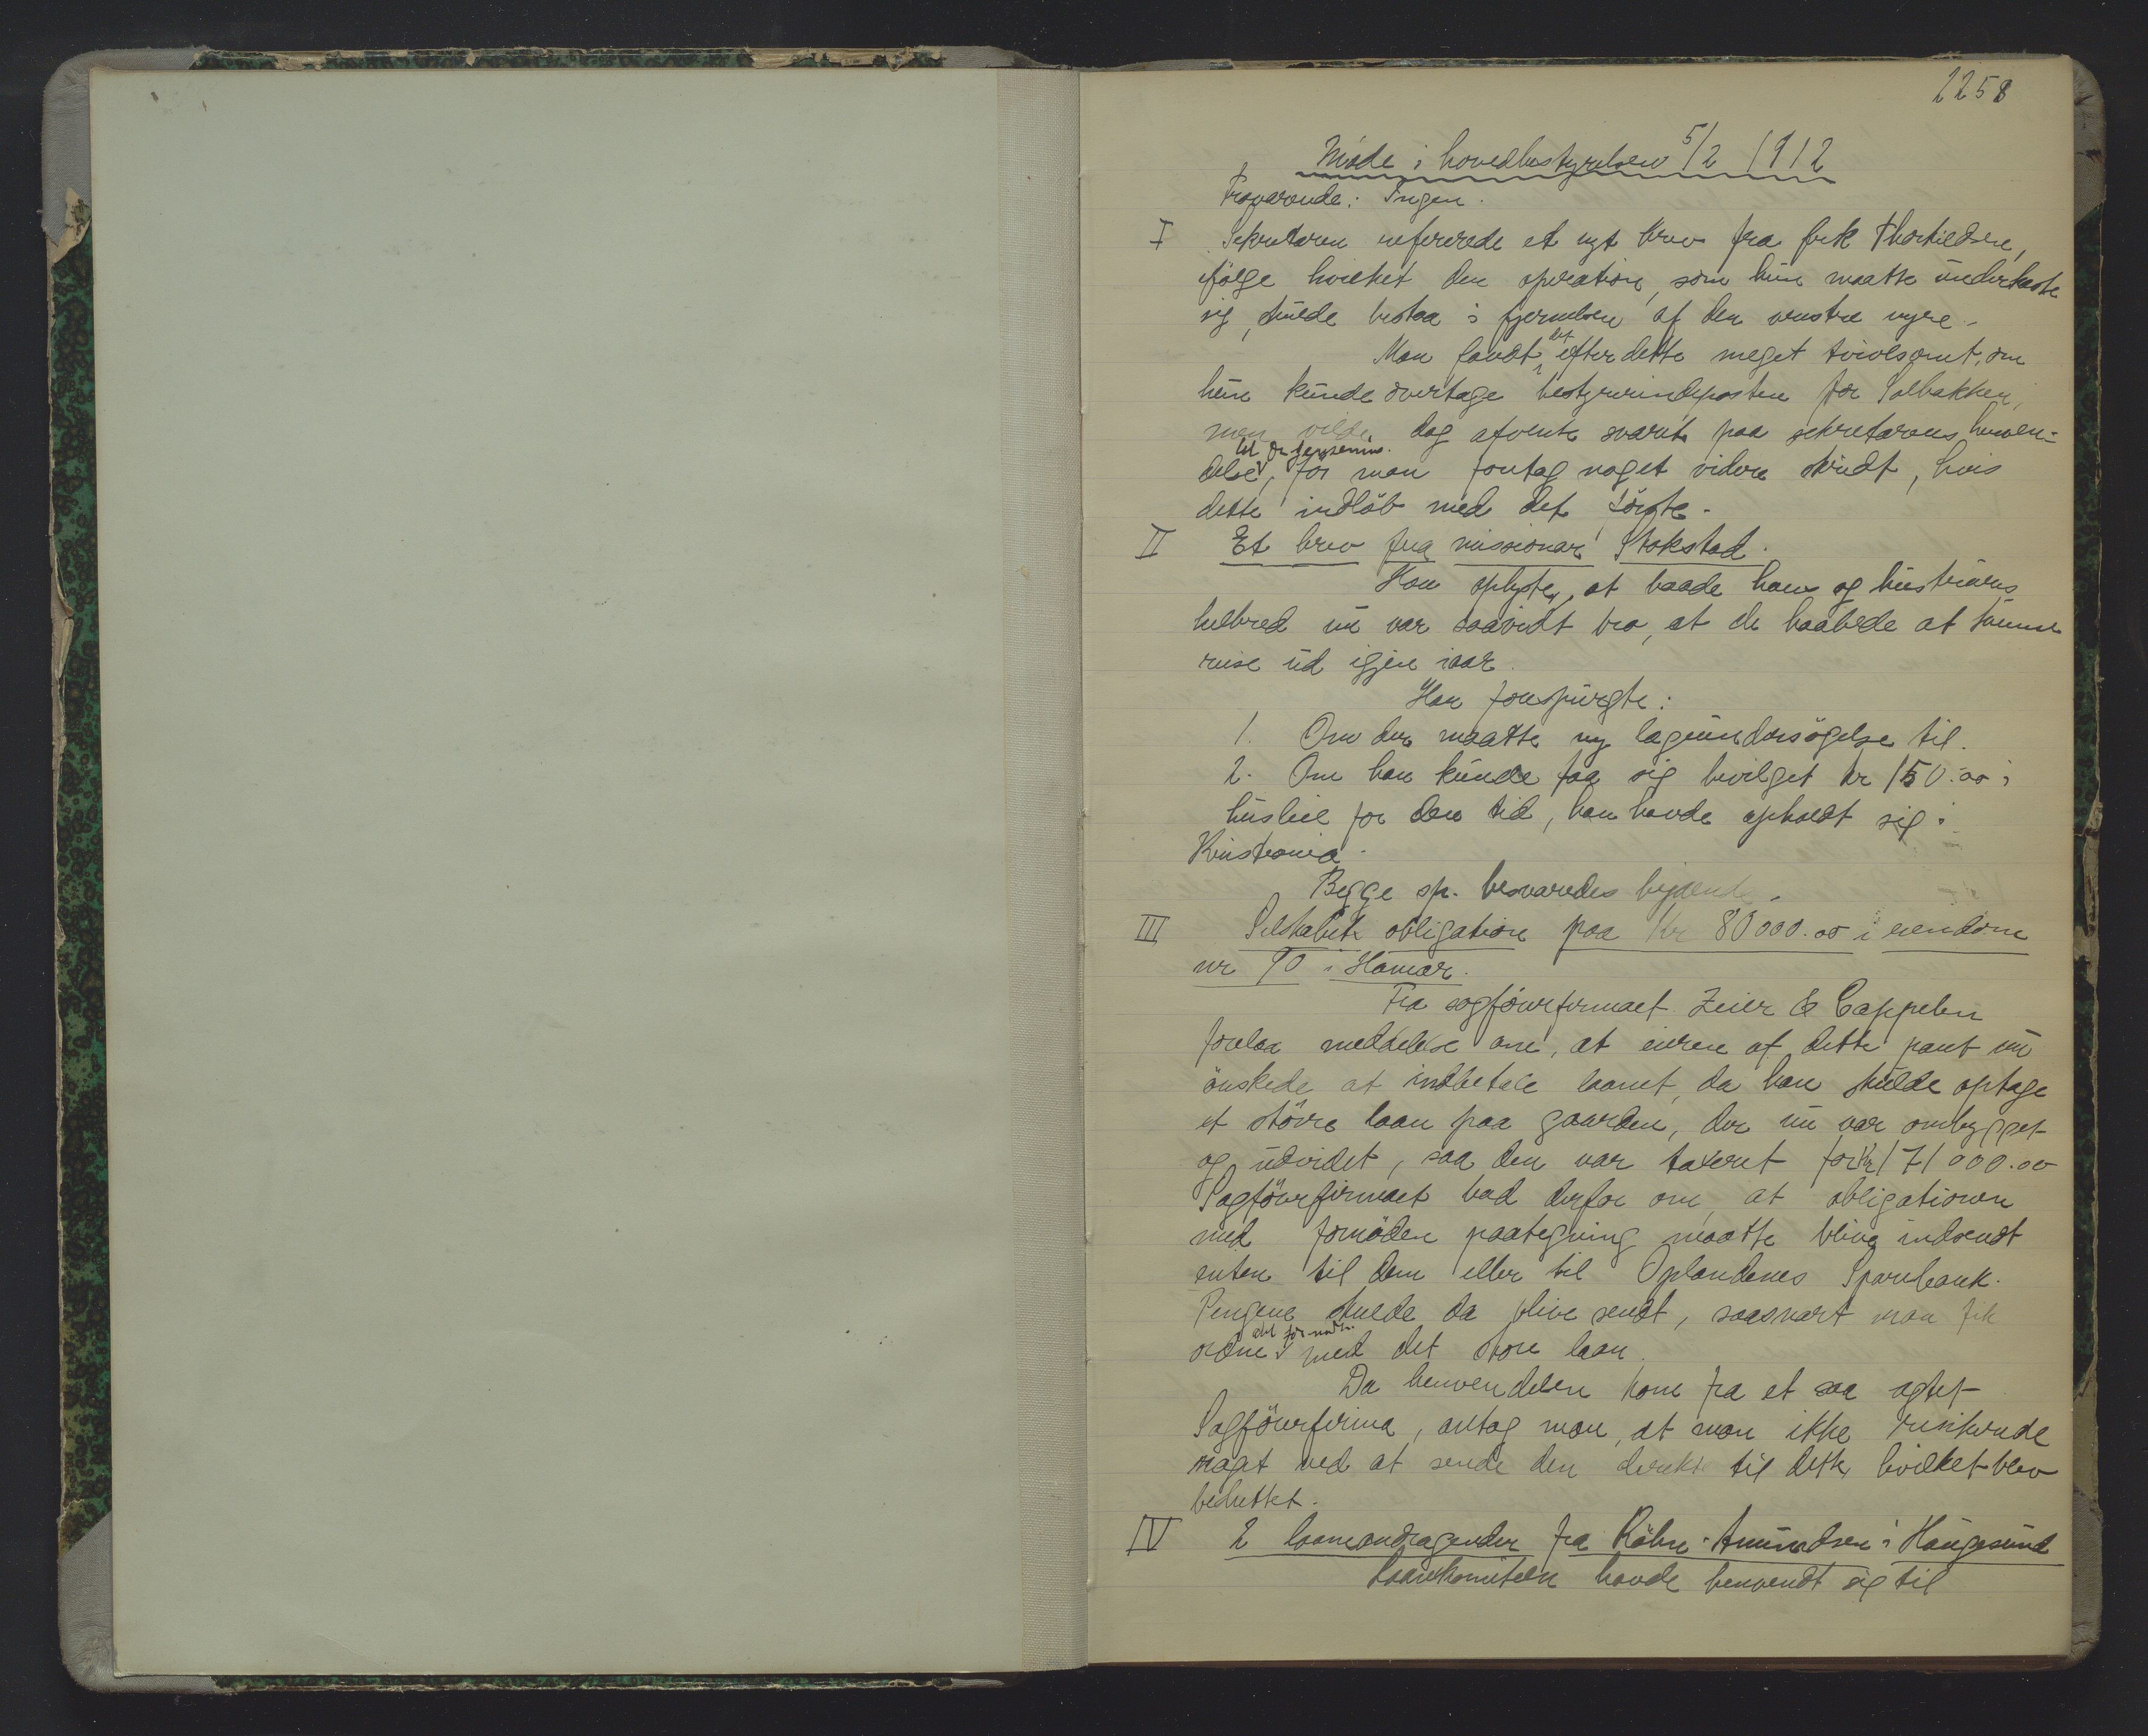 2258
Möde i hovedbestyrelsen 5/2 1912
Fraværende: Ingen.
I Sekretæren refererede et nyt brev fra frk Thorkildsen,
ifölge hvilket den operation, som hun maatte underkaste
sig, skulde bestaa i fjernelsen af den venstre nyre.
Man fandt det efter dette meget tvivlsomt, om
hun kunde overtage bestyrerindeposten for Solbakken,
men vilde dog afvente svaret paa sekretærens henven-
delse til dr. , för man foretog noget videre skridt, hvis
dette indlöb med det förste.
II Et brev fra missionær Stokstad.
Han oplyste, at baade hans og hustruens
helbred nu var saavidt bra, at de haabede at kunne
reise ud igjen iaar.
Han forespurgte:
1. Om der maatte ny lægeundersögelse til.
2. Om han kunde faa sig bevilget kr 150.00 i
husleie for den tid, han havde opholdt sig i
Kristiania.
Begge sp. besvaredes bejaende.
III Selskabets obligation paa Kr 80000.00 i eiendom
nr 90 i Hamar.
Fra sagförerfirmaet Zeier & Cappelen
forelaa meddelelse om, at eieren af dette pant nu
önskede at indbetale laanet, da han skulde optage
et större laan paa gaarden, der nu var ombygget
og udvidet, saa den var taxeret for Kr 171000.00
Sagförerfirmaet bad derfor om, at obligationen
med fornöden paategning maatte blive indsendt
enten til dem eller til Oplandenes Sparebank.
Pengene skulde da blive sendt, saasnart man fik
ordnet det fornödne med det store laan.
Da henvendelsen kom fra et saa agtet
Sagförerfirma, antog man, at man ikke risikerede
noget ved at sende den direkte til dette, hvilket blev
besluttet.
IV 2 laaneandragender fra Amundsen i Haugesund
Laanekomiteen havde henvendt sig til